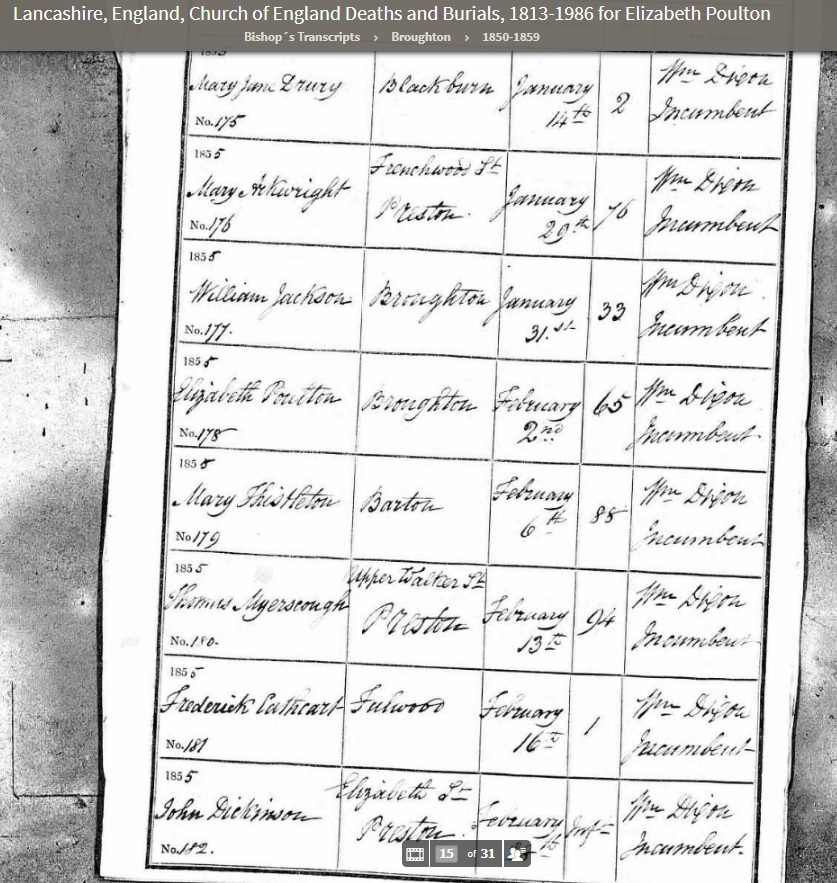 Lancashire, England, Church of England Deaths and Burials, 1813-1986 for Elizabeth Poulton
Bishop´s Transcripts › Broughton › 1850-1859
1855
Mary Jane Drury Blackburn January 14th 2 Wm Dixon Incumbent
No. 175
1855
Mary Arkwright Frenchwood St Preston. January 29th 76 Wm Dixon Incumbent
No. 176
1855
William Jackson Broughton January 31.st 33 Wm Dixon Incumbent
No. 177.
1855
Elizabeth Poulton Broughton February 2nd 65 Wm Dixon Incumbent
No. 178
1855
Mary Thistleton Barton February 6th 88 Wm Dixon Incumbent
No 179
1855
Thomas Myerscough Upper Walker St Preston February 13th 94 Wm Dixon Incumbent
No. 180.
1855
Frederick Cathcart Fulwood February 16th 1 Wm Dixon Incumbent
No. 181
1855
John Dickinson Elizabeth St Preston. February Inft Wm Dixon Incumbent.
No. 182.
15 of 31